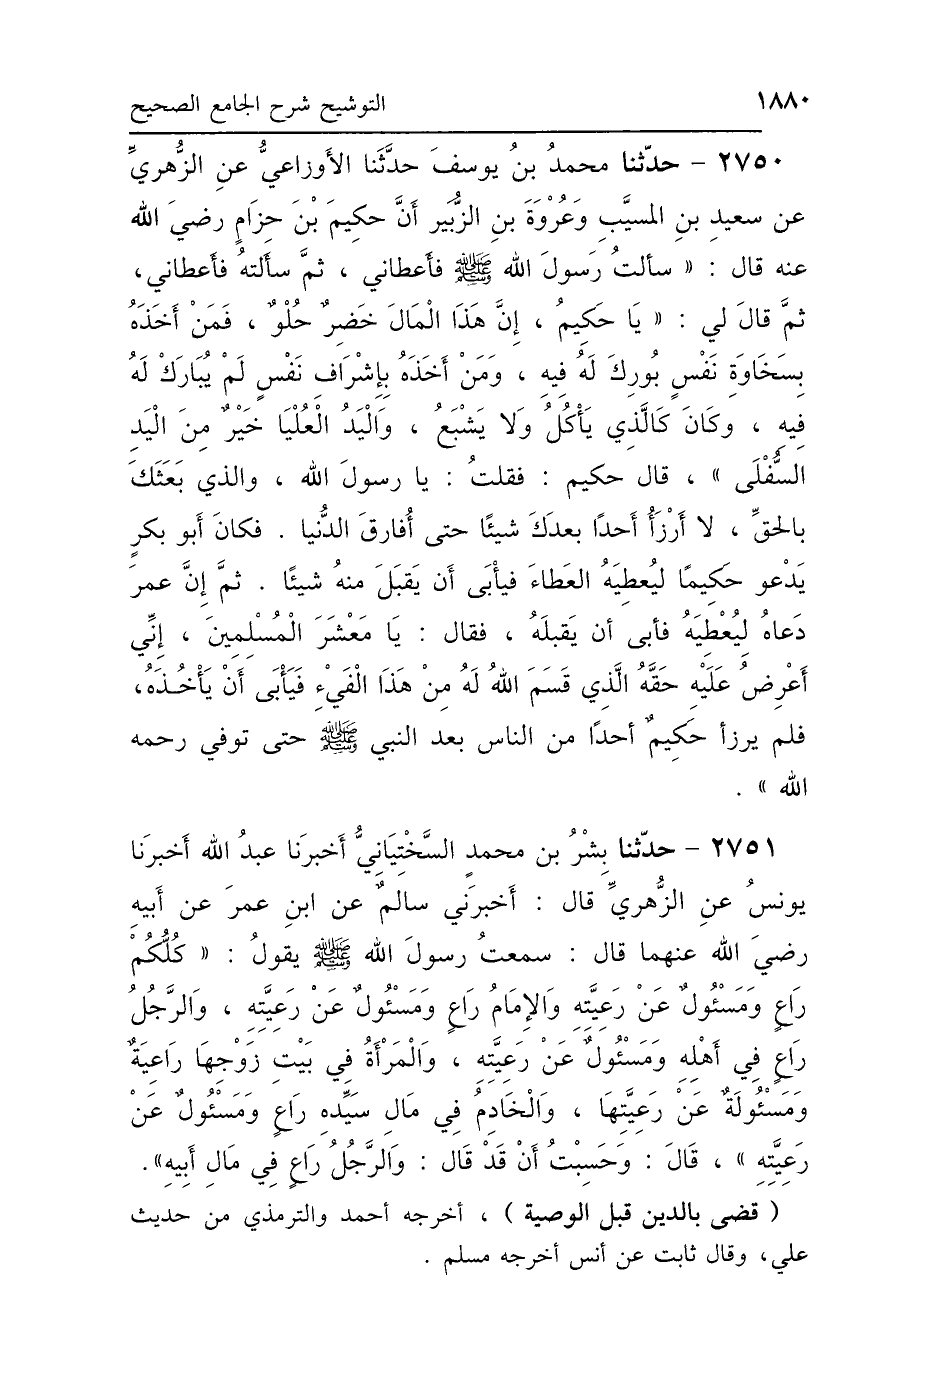 ١٨٨٠ التوشيح شرح الجامع الصحيح
٢٧٥٠ - حدّثنا محمدُ بنُ يوسفَ حدَّثَنا الأَوزاعيُّ عنِ الزُّهريِّ
عن سعيدِ بنِ المسيَّبِ وَعُرْوَةَ بنِ الزُّبَير أنَّ حكيمَ بْنَ حِزَامٍ رضيَ الله
عنه قال : « سألتُ رَسولَ الله ﷺ فأعطاني ، ثمَّ سألتهُ فأعطاني،
ثمَّ قالَ لي : « يَا حَكِيمُ ، إِنَّ هَذَا الْمَالَ خَضِرٌ حُلْوٌ ، فَمَنْ أَخَذَهُ
بِسَخَاوَةِ نَفْسٍ بُورِكَ لَهُ فِيهِ ، وَمَنْ أَخَذَهُ بِإِشْرَافِ نَفْسٍ لَمْ يُبَارَكْ لَهُ
فِيهِ ، وَكَانَ كَالَّذِي يَأْكُلُ وَلا يَشْبَعُ ، وَالْيَدُ الْعُلْيَا خَيْرٌ مِنَ الْيَدِ
السُّفْلَى » ، قال حكيم : فقلتُ : يا رسولَ الله ، والذي بَعَثَكَ
بالحقِّ ، لا أَرْزَأُ أحدًا بعدَكَ شيئًا حتى أُفارقَ الدُّنيا . فكانَ أبو بكرٍ
يَدْعو حَكِيمًا ليُعطيَهُ العَطاءَ فيأْبَى أن يَقبَلَ منهُ شيئًا . ثمَّ إنَّ عمرَ
دَعاهُ لِيُعْطِيَهُ فأبى أن يَقبلَهُ ، فقال : يَا مَعْشَرَ الْمُسْلِمِينَ ، إِنِّي
أَعْرِضُ عَلَيْهِ حَقَّهُ الَّذِي قَسَمَ اللهُ لَهُ مِنْ هَذَا الْفَيْءِ فَيَأْبَى أَنْ يَأْخُذَهُ،
فلم يرزأ حَكِيمٌ أحدًا من الناس بعد النبي ﷺ حتى توفي رحمه
الله » .
٢٧٥١ - حدّثنا بِشْرُ بن محمدٍ السَّخْتِيَانِيُّ أَخبرنَا عبدُ الله أَخبرنَا
يونسُ عنِ الزُّهريِّ قال : أَخبرَني سالمٌ عن ابنِ عمرَ عن أَبيهِ
رضيَ الله عنهما قال : سمعتُ رسولَ الله ﷺ يقولُ : « كُلُّكُمْ
رَاعٍ وَمَسْئُولٌ عَنْ رَعِيَّتِهِ وَالإِمَامُ رَاعٍ وَمَسْئُولٌ عَنْ رَعِيَّتِهِ ، وَالرَّجُلُ
رَاعٍ فِي أَهْلِهِ وَمَسْئُولٌ عَنْ رَعِيَّتِهِ ، وَالْمَرْأَةُ فِي بَيْتِ زَوْجِهَا رَاعِيَةٌ
وَمَسْئُولَةٌ عَنْ رَعِيَّتِهَا ، وَالْخَادِمُ فِي مَالِ سَيِّدِهِ رَاعٍ وَمَسْئُولٌ عَنْ
رَعِيَّتِهِ » ، قَالَ : وَحَسِبْتُ أَنْ قَدْ قَالَ : وَالرَّجُلُ رَاعٍ فِي مَالِ أَبِيهِ».
( قضى بالدين قبل الوصية ) ، أخرجه أحمد والترمذي من حديث
علي، وقال ثابت عن أنس أخرجه مسلم .